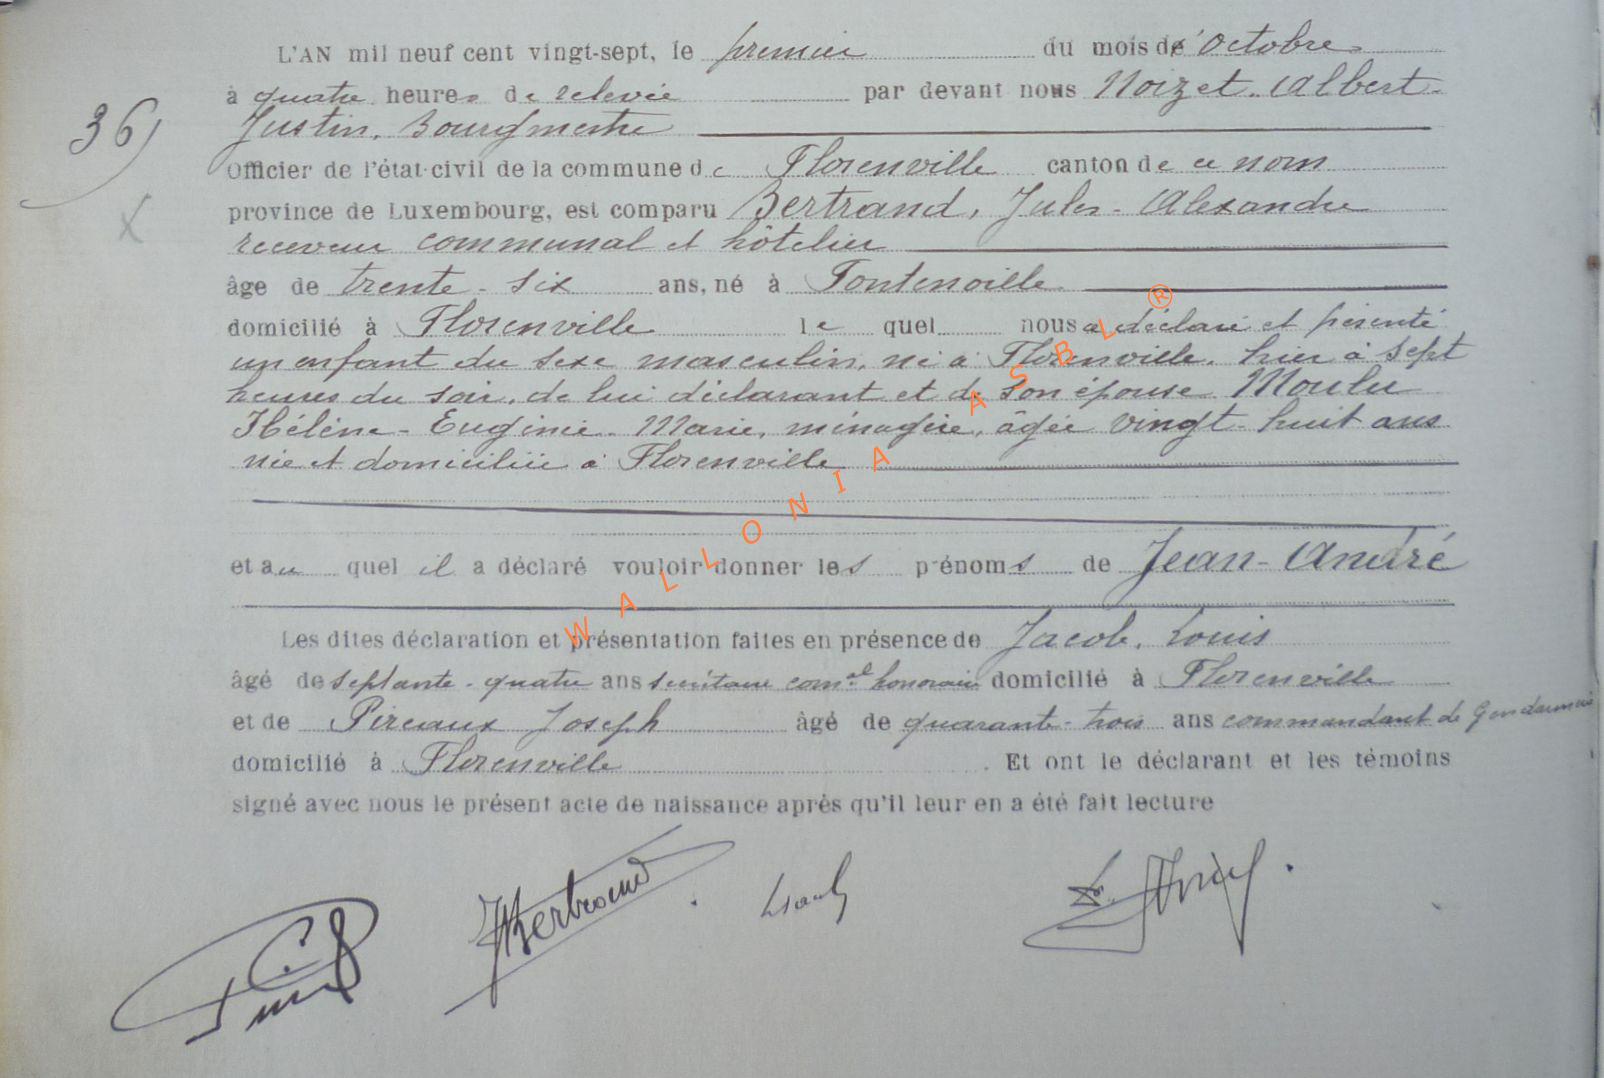 L'AN mil neuf cent vingt-sept, le premier du mois de Octobre
36)
à quatre heures de relevée par devant nous Noizet Albert-
Justin, Bourgmestre
Officier de l'état-civil de la commune de Florenville canton de ce nom
province de Luxembourg, est comparu Bertrand, Jules-Alexandre
receveur communal et hôtelier
âge de trente-six ans, né à Fontenoille
domicilié à Florenville lequel nous a déclaré et présenté
un enfant du sexe masculin, né à Florenville, hier à sept
heures du soir, de lui déclarant et de son épouse Moulu
Hélène-Eugénie-Marie, ménagère, âgée vingt-huit ans
née et domiciliée à Florenville
et au quel il a déclaré vouloir donner les prénoms de Jean-André
Les dites déclaration et présentation faites en présence de Jacob, Louis
âgé de septante-quatre ans secrétaire comal honoraire domicilié à Florenville
et de Pireaux Joseph âgé de quarante-trois ans commandant de Gendarmerie
domicilié à Florenville. Et ont le déclarant et les témoins
signé avec nous le présent acte de naissance après qu'il leur en a été fait lecture
JBertrand
WALLONIA ASBL ®